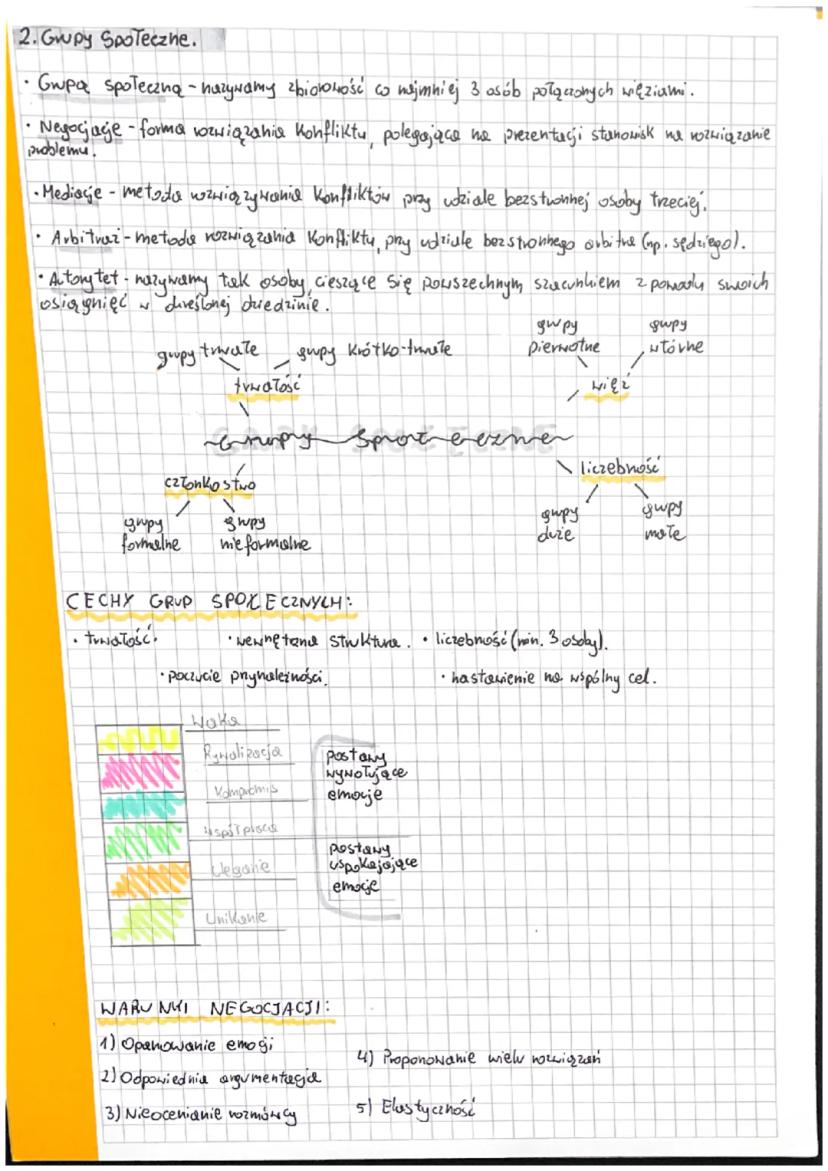 2. Grupy Społeczne.
• Grupą społeczną - nazywamy zbiorowość co najmniej 3 osób połączonych więziami.
• Negocjacje - forma rozwiązania konfliktu, polegająca na prezentacji stanowisk na rozwiązanie
problemu.
• Mediacje - metoda rozwiązywania konfliktów przy udziale bezstronnej osoby trzeciej.
• Arbitraż - metoda rozwiązania konfliktu, przy udziale bezstronnego arbitra (np. sędziego).
• Autorytet - nazywamy tak osoby, cieszące się powszechnym szacunkiem z powodu swoich
osiągnięć w określonej dziedzinie.
grupy trwałe
grupy krótko-trwałe
trwałość
grupy
pierwotne
grupy
wtórne
więź
Grupy Społeczne
członkostwo
grupy
formalne
grupy
nieformalne
liczebność
grupy
duże
grupy
małe
CECHY GRUP SPOŁECZNYCH:
• trwałość.
• wewnętrzna struktura.
• liczebność (min. 3 osoby).
• poczucie przynależności.
• nastawienie na wspólny cel.
Walka
Rywalizacja
Kompromis
współpraca
Uleganie
Unikanie
postawy
wywołujące
emocje
postawy
uspokajające
emocje
WARUNKI NEGOCJACJI:
1) Opanowanie emocji
2) Odpowiednia argumentacja
3) Nieocenianie rozmówcy
4) Proponowanie wielu rozwiązań
5) Elastyczność